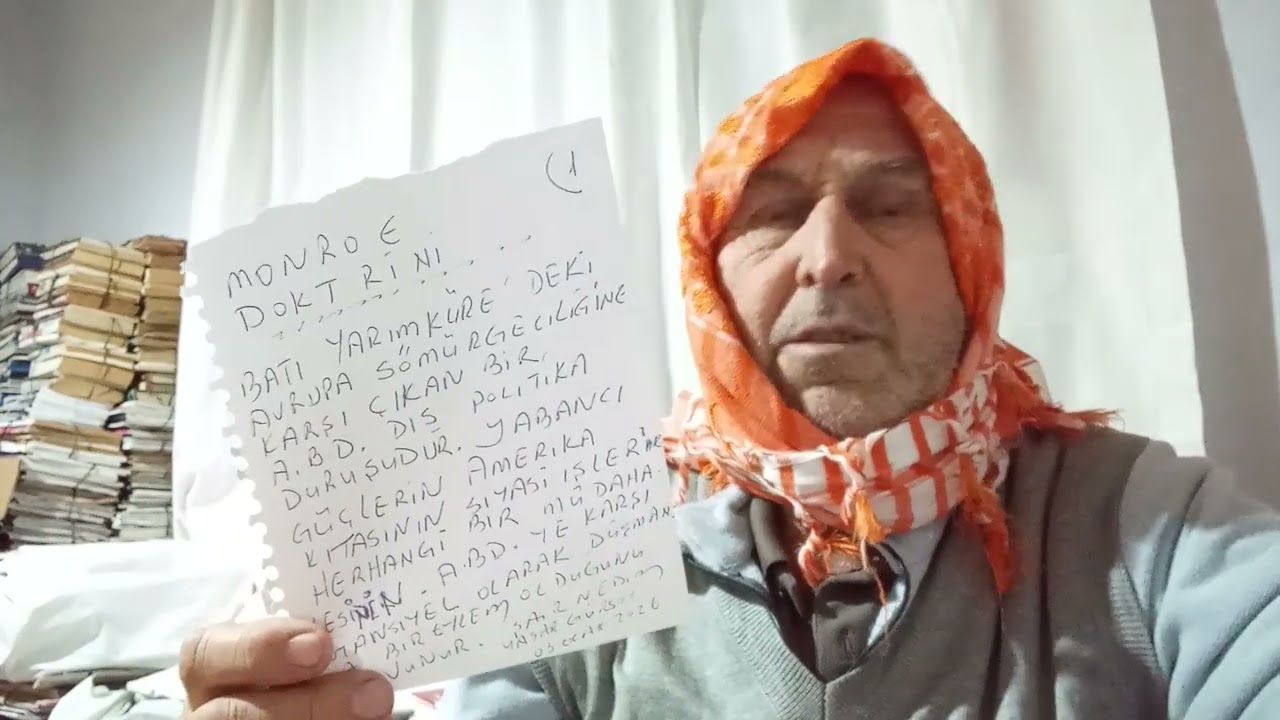 (1
MONROE
DOKTRİNİ
BATI YARIMKÜRE'DEKİ
AVRUPA SÖMÜRGECİLİĞİNE
KARŞI ÇIKAN BİR
A.B.D. DIŞ POLİTİKA
DURUŞUDUR. YABANCI
GÜÇLERİN AMERİKA
KITASININ SİYASİ İŞLERİNE
HERHANGİ BİR MÜDAHA-
LESİNİN. A.BD. YE KARŞI
ANSİYEL OLARAK DÜŞMAN
BİR EYLEM OLDUĞUNU
UNUR. ŞAİR NEDİM
YAŞAR GÜRSOY
03 OCAK 2026